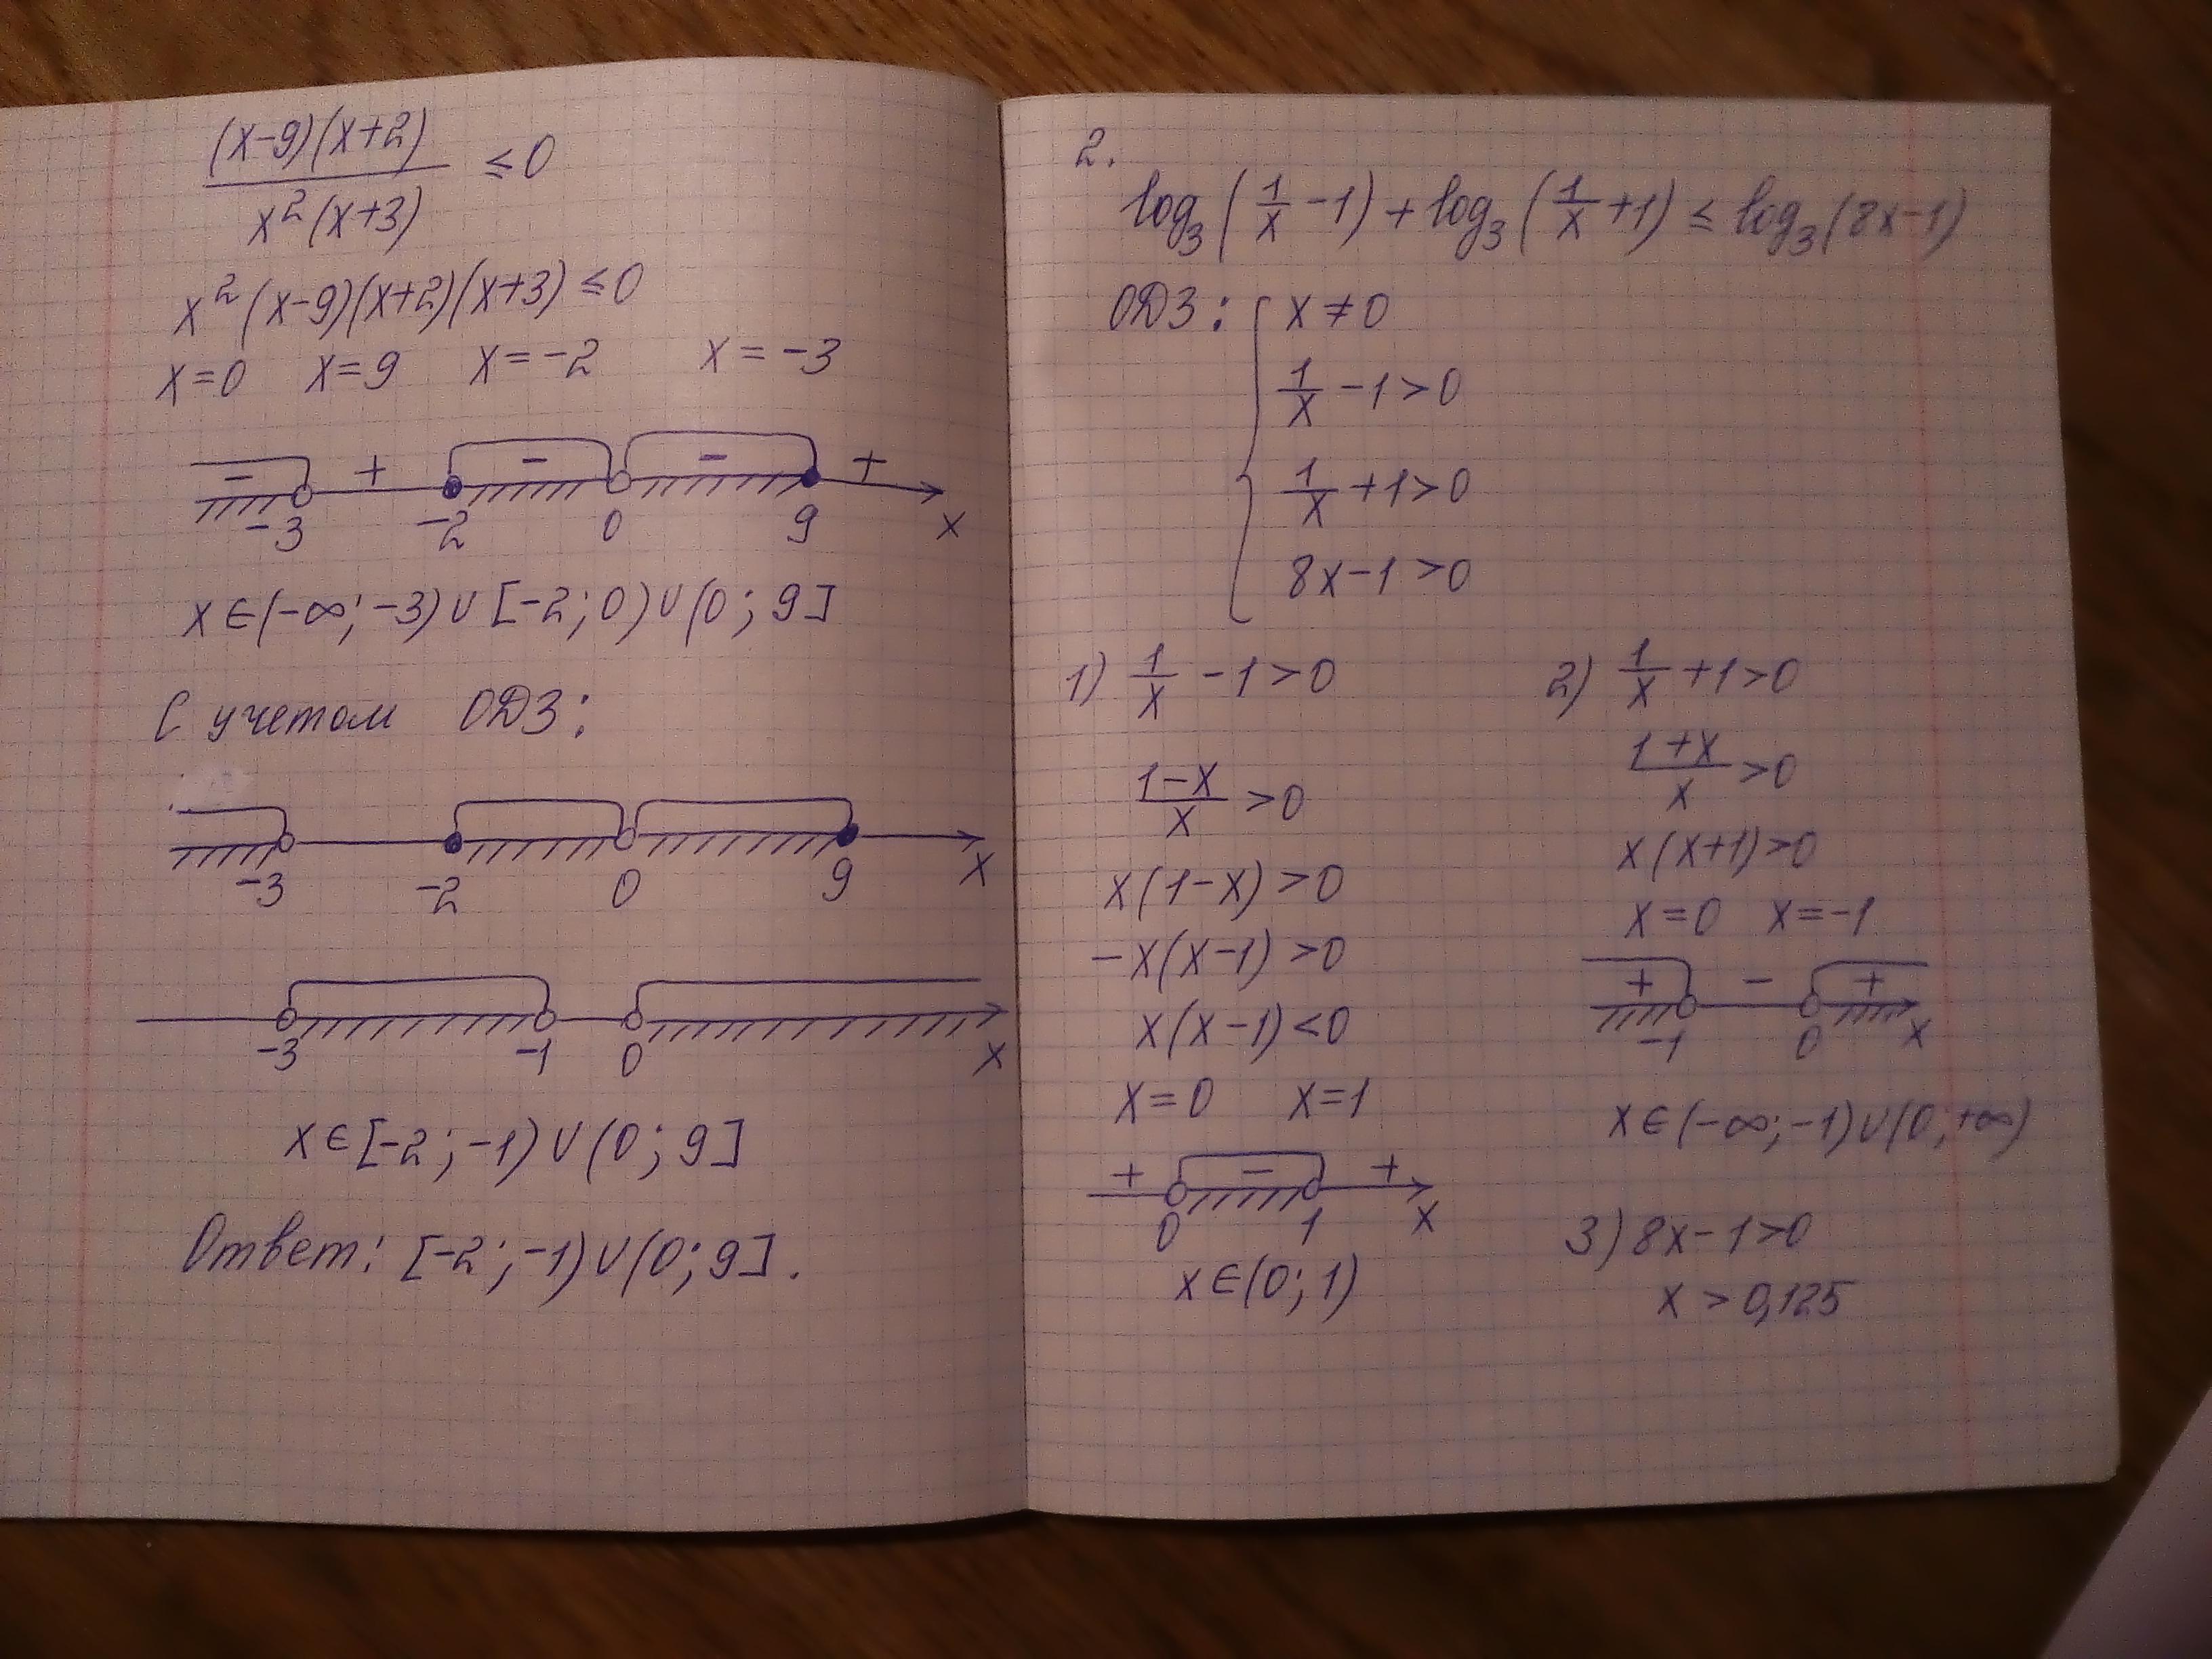 (x-9)(x+2)
x²(x+3) ≤0
x²(x-9)(x+2)(x+3)≤0
x=0 x=9 x=-2 x=-3
- + - - +
-3 -2 0 9 x
x∈(-∞;-3)∪[-2;0)∪(0;9]
С учетом ОДЗ:
-3 -2 0 9 x
-3 -1 0 x
x∈[-2;-1)∪(0;9]
Ответ: [-2;-1)∪(0;9].
2.
log₃(1/x -1)+log₃(1/x +1)≤log₃(8x-1)
ОДЗ: { x≠0
1/x -1>0
1/x +1>0
8x-1>0
1) 1/x -1>0
(1-x)/x >0
x(1-x)>0
-x(x-1)>0
x(x-1)<0
x=0 x=1
+ - +
0 1 x
x∈(0;1)
2) 1/x +1>0
(1+x)/x >0
x(x+1)>0
x=0 x=-1
+ - +
-1 0 x
x∈(-∞;-1)∪(0;+∞)
3) 8x-1>0
x>0,125